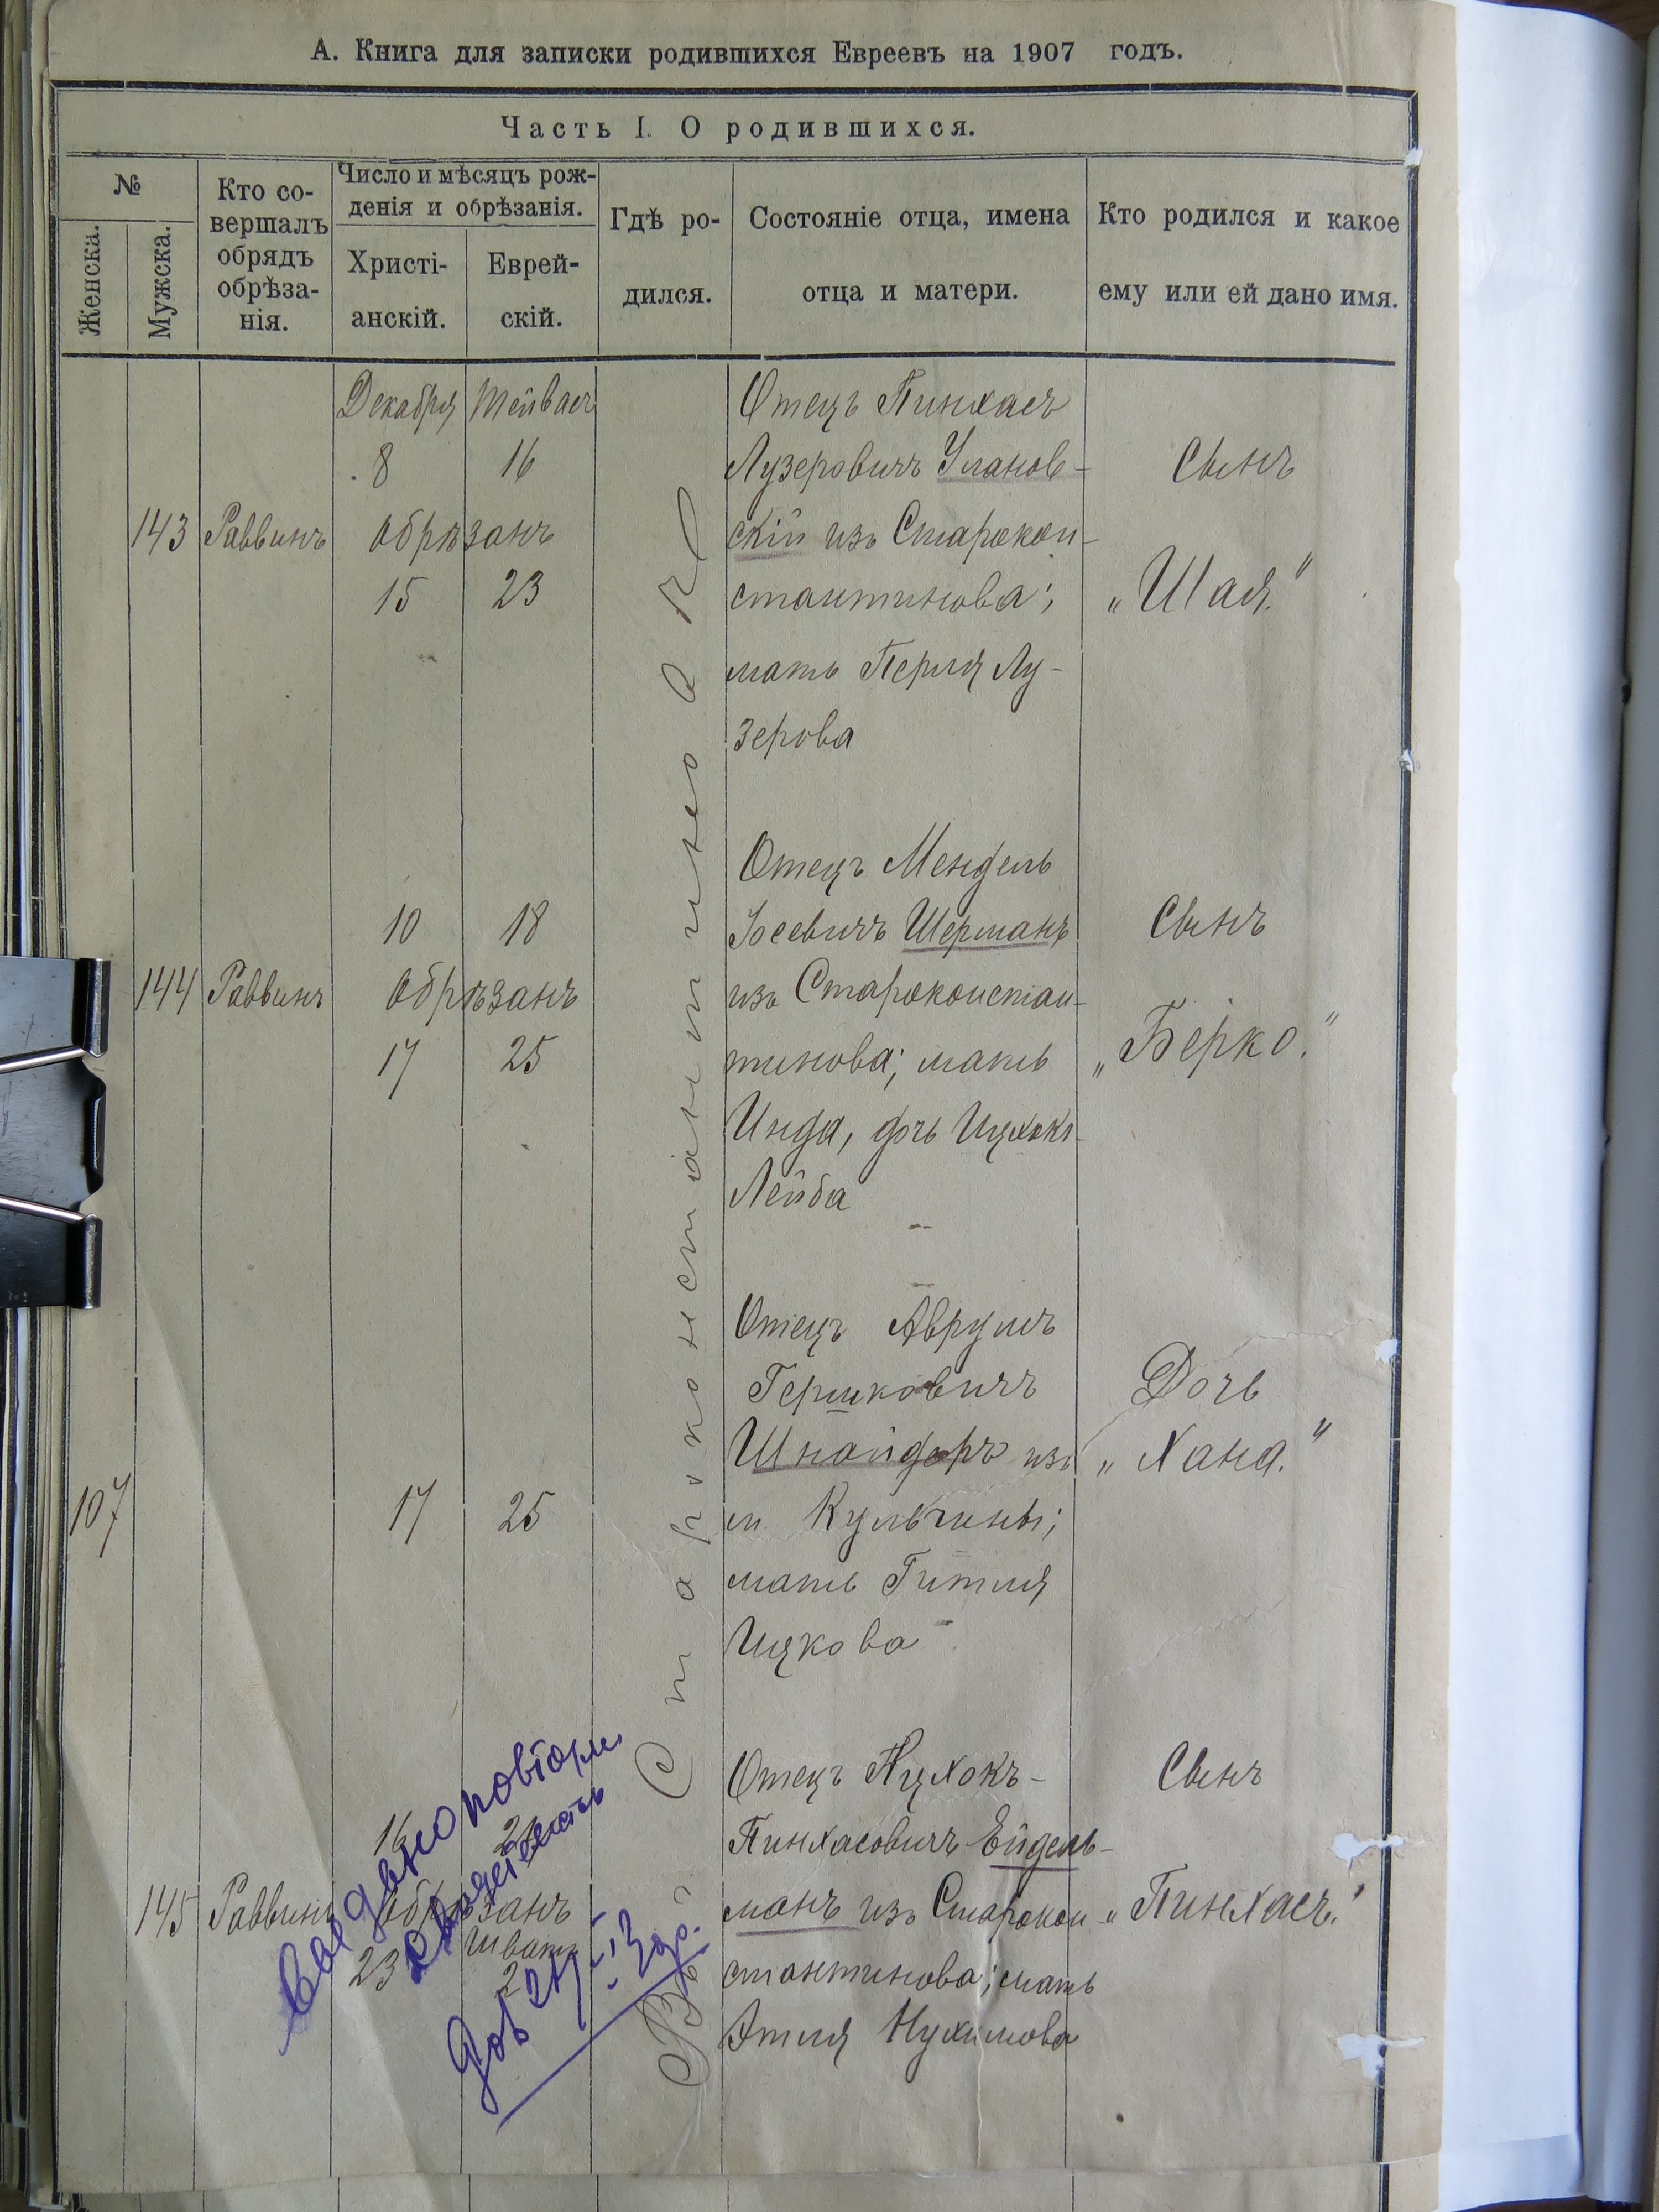 А. Книга для записки родившихся Евреевъ на 1907 годъ.
Часть I. О родившихся.
№
Женска.
Мужска.
Кто со-
вершалъ
обрядъ
обрѣза-
нія.
Число и мѣсяцъ рож-
денія и обрѣзанія.
Христі-
анскій.
Еврей-
скій.
Гдѣ ро-
дился.
Состояніе отца, имена
отца и матери.
Кто родился и какое
ему или ей дано имя.
Въ г. Староконстантиновѣ
143
Раввинъ
Декабря Тейвасъ
8 16
Обрѣзанъ
15 23
Отецъ Пинхасъ
Лузеровичъ Уланов-
скій изъ Старокон-
стантинова;
мать Перля Лу-
зерова
Сынъ
„Шая."
144
Раввинъ
10 18
Обрѣзанъ
17 25
Отецъ Мендель
Іосевичъ Шерманъ
изъ Староконстан-
тинова; мать
Инда, дочь Ицхокъ-
Лейба
Сынъ
„Берко."
107
17 25
Отецъ Аврумъ
Гершковичъ
Шнайдеръ изъ
м. Кульчины;
мать Гитля
Ицкова
Дочь
„Хана."
145
Раввинъ
16
Обрѣзанъ
Шватъ
23
Отецъ Ицхокъ-
Пинхасовичъ Ейдель-
манъ изъ Старокон-
стантинова; мать
Этля Нухимова
Сынъ
„Пинхасъ."